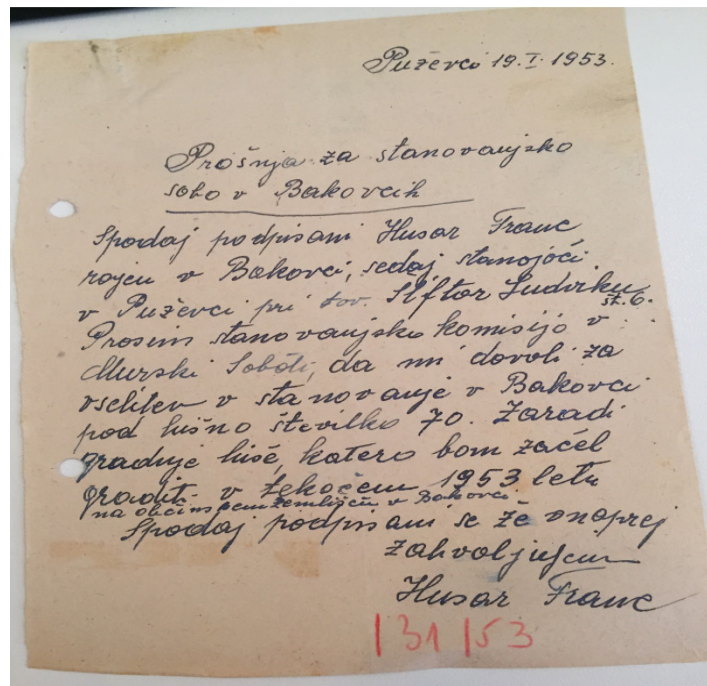 Puževci 19.I.1953.
Prošnja za stanovanjsko
sobo v Bakovcih
Spodaj podpisani Husar Franc
rojen v Bakovci, sedaj stanojoči
v Puževci pri tov. Šiftar Ludviku
št. 6.
Prosim stanovanjsko komisijo v
Murski Soboti, da mi dovoli za
vselitev v stanovanje v Bakovci
pod hišno številko 70. Zaradi
gradnje hiše, katero bom začel
gradit v tekočem 1953 letu
na občinskem zemljišču v Bakovci
Spodaj podpisani se že vnaprej
zahvaljujem
Husar Franc
131/53